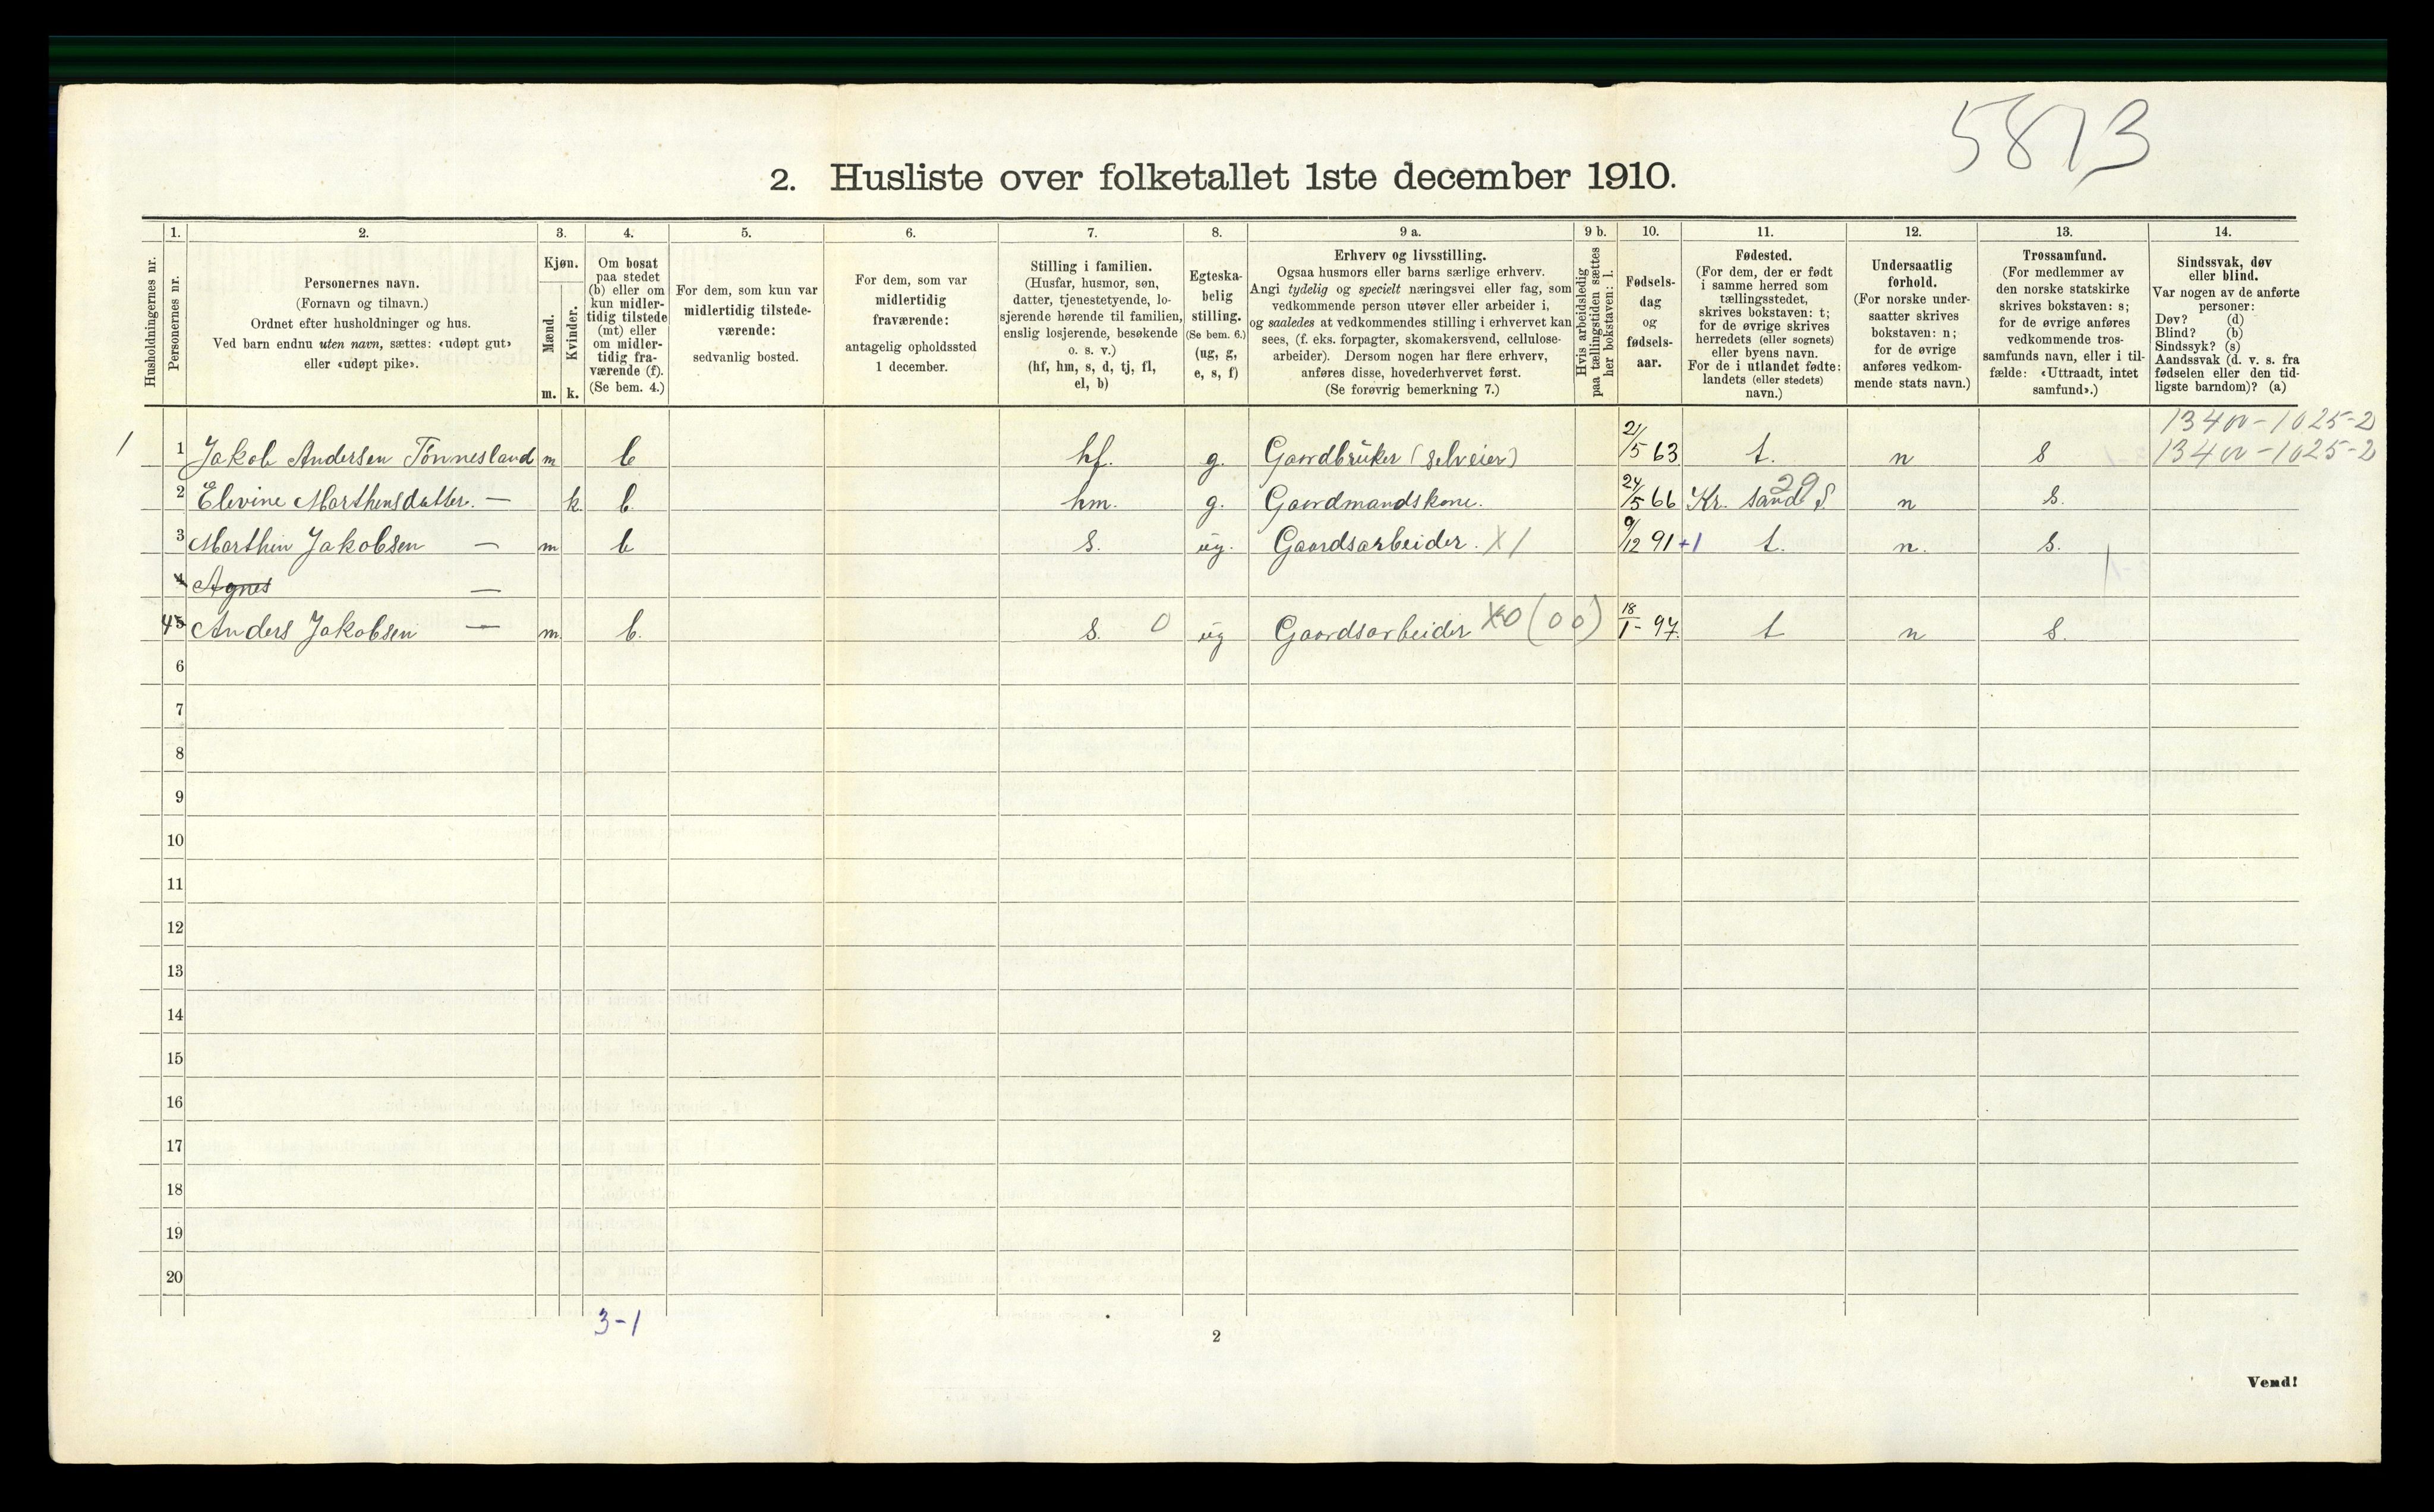 5873
2. Husliste over folketallet 1ste december 1910.
1. 2. 3. 4. 5. 6. 7. 8. 9 a. 9 b. 10. 11. 12. 13. 14.
Husholdningernes nr.
Personernes nr.
Personernes navn.
(Fornavn og tilnavn.)
Ordnet efter husholdninger og hus.
Ved barn endnu uten navn, sættes: «udøpt gut»
eller «udøpt pike».
Kjøn.
Mænd.
Kvinder.
m. k.
Om bosat
paa stedet
(b) eller om
kun midler-
tidig tilstede
(mt) eller
om midler-
tidig fra-
værende (f).
(Se bem. 4.)
For dem, som kun var
midlertidig tilstede-
værende:
sedvanlig bosted.
For dem, som var
midlertidig
fraværende:
antagelig opholdssted
1 december.
Stilling i familien.
(Husfar, husmor, søn,
datter, tjenestetyende, lo-
sjerende hørende til familien,
enslig losjerende, besøkende
o. s. v.)
(hf, hm, s, d, tj, fl,
el, b)
Egteska-
belig
stilling.
(Se bem. 6.)
(ug, g,
e, s, f)
Erhverv og livsstilling.
Ogsaa husmors eller barns særlige erhverv.
Angi tydelig og specielt næringsvei eller fag, som
vedkommende person utøver eller arbeider i,
og saaledes at vedkommendes stilling i erhvervet kan
sees, (f. eks. forpagter, skomakersvend, cellulose-
arbeider). Dersom nogen har flere erhverv,
anføres disse, hovederhvervet først.
(Se forøvrig bemerkning 7.)
Hvis arbeidsledig
paa tællingstiden sættes
her bokstaven: l.
Fødsels-
dag
og
fødsels-
aar.
Fødested.
(For dem, der er født
i samme herred som
tællingsstedet,
skrives bokstaven: t;
for de øvrige skrives
herredets (eller sognets)
eller byens navn.
For de i utlandet fødte:
landets (eller stedets)
navn.)
Undersaatlig
forhold.
(For norske under-
saatter skrives
bokstaven: n;
for de øvrige
anføres vedkom-
mende stats navn.)
Trossamfund.
(For medlemmer av
den norske statskirke
skrives bokstaven: s;
for de øvrige anføres
vedkommende tros-
samfunds navn, eller i til-
fælde: «Uttraadt, intet
samfund».)
Sindssvak, døv
eller blind.
Var nogen av de anførte
personer:
Døv? (d)
Blind? (b)
Sindssyk? (s)
Aandssvak (d. v. s. fra
fødselen eller den tid-
ligste barndom)? (a)
13400-1025-2
1 1 Jakob Andersen Tönnesland m b hf. g. Gaardbrüker (selveier) 21/5 63 t. n s 13400-1025-2
2 Elevine Marthensdatter. — k. b. hm. g. Gaardmandskone. 24/5 66 Kr. sand S. 29 n s.
3 Marthin Jakobsen — m b s. üg. Gaardsarbeider. X1 9/12 91 +1 t. n. s.
4 Agnes —
45 Anders Jakobsen — m b. s. 0 üg Gaardsarbeider X0 (00) 18/1 - 97. t n s.
6
7
8
9
10
11
12
13
14
15
16
17
18
19
20
3-1
2
Vend!